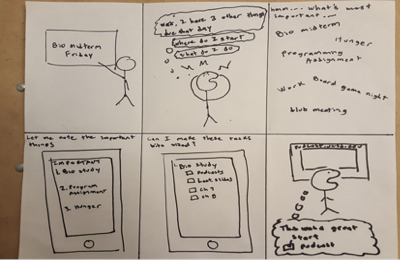 Bio midterm
Friday
wait, I have 3 other things
due that day
where do I start
what do I do
Hmm... what's most
important...
Bio midterm
Hunger
Programming
Assignment
Work
Board game night
club meeting
Let me note the important
things
Important
1. Bio study
2. Program
Assignment
3. Hunger
Can I make these tasks
1. Bio study
Podcasts
book slides
ch 7
ch 8
This was a great
start
podcast